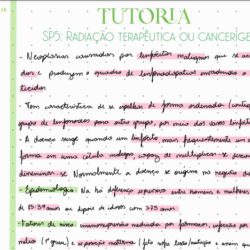 TUTORIA
SP5: RADIAÇÃO TERAPÊUTICA OU CANCERÍGE
- Neoplasias causadas por linfócitos malignos que se
dos e produzem o quadro de linfonodopatia
tecidos
- Tem característica de se espalhar de forma ordenada (contíg
grupo de linfonodos para outro grupo, por meio dos vasos linfát
- A doença surge quando um linfócito, mais frequentemente um
forma em uma célula maligna, capaz de multiplicar-se
disseminar-se. Normalmente a doença se origina na região do
- Epidemiologia: Não há diferença entre homens e mulheres
de 15-39 anos ou depois de idosos com >75 anos.
- Fatores de risco: imunossuprimidos medicados por fármacos, infecção por
médio (1º grau), e exposição materna